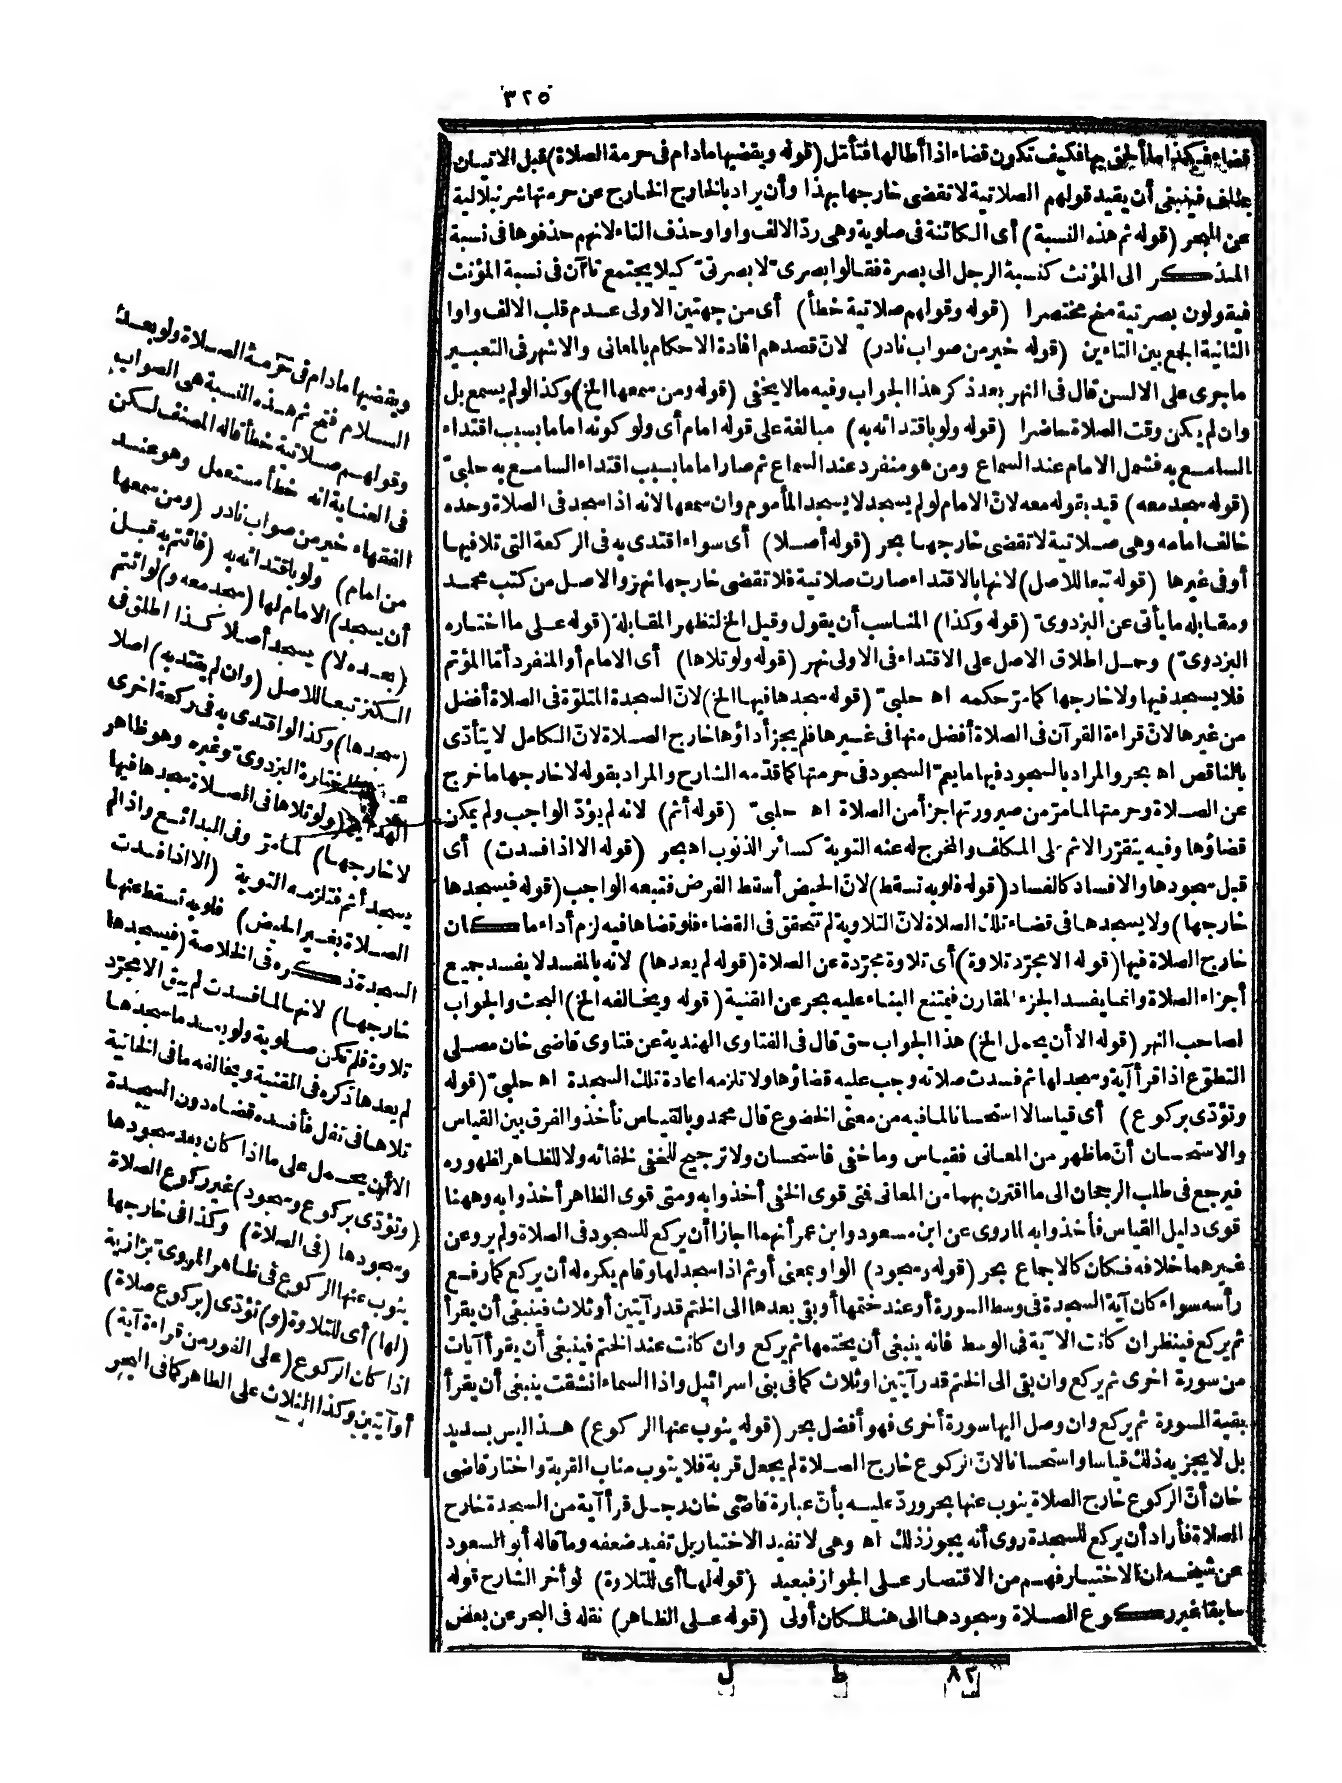 ٣٢٥
قضاء فكذا ما ألحق بها فكيف تكون قضاء اذا أطالها فتأمّل (قوله ويقضيها مادام فى حرمة الصلاة) قبل الاتيان
فينبغى أن يقيد قولهم الصلاتية لا تقضى خارجها بهذا وأن يراد بالخارج الخارج عن حرمتها شرنبلالية
عن البحر (قوله ثم هذه النسبة) أى الكائنة فى صلوية وهى ردّ الالف واوا وحذف التاء لانهم حذفوها فى نسبة
المذكر الى المؤنث كنسبة الرجل الى بصرة فقالوا بصرىّ لا بصرتىّ كيلا يجتمع تاآن فى نسبة المؤنث
فيقولون بصرتية منح مختصرا (قوله وقولهم صلاتية خطأ) أى من جهتين الاولى عدم قلب الالف واوا
الثانية الجمع بين التاءين (قوله خير من صواب نادر) لانّ قصدهم افادة الاحكام بالمعانى والاشهر فى التعبير
ما جرى على الالسن قال فى النهر بعد ذكر هذا الجواب وفيه مالا يخفى (قوله ومن سمعها الخ) وكذا لو لم يسمع بل
وان لم يكن وقت الصلاة حاضرا (قوله ولو باقتدائه به) مبالغة على قوله امام أى ولو كونه اماما بسبب اقتداء
السامع به فشمل الامام عند السماع ومن هو منفرد عند السماع ثم صار اماما بسبب اقتداء السامع به حلبىّ
(قوله سجد معه) قيد بقوله معه لانّ الامام لو لم يسجد لا يسجد المأموم وان سمعها لانه اذا سجد فى الصلاة وحده
خالف امامه وهى صلاتية لا تقضى خارجها بحر (قوله أصلا) أى سواء اقتدى به فى الركعة التى تلا فيها
أو فى غيرها (قوله تبعا للاصل) لانها بالاقتداء صارت صلاتية فلا تقضى خارجها نهر والاصل من كتب محمد
ومقابله ما يأتى عن البزدوىّ (قوله وكذا) المناسب أن يقول وقيل الخ لتظهر المقابلة (قوله على ما اختاره
البزدوىّ) وحمل اطلاق الاصل على الاقتداء فى الاولى نهر (قوله ولو تلاها) أى الامام أو المنفرد أمّا المؤتم
فلا يسجد فيها ولا خارجها كما مرّ حكمه اه حلبىّ (قوله سجدها فيها الخ) لانّ السجدة المتلوّة فى الصلاة أفضل
من غيرها لانّ قراءة القرآن فى الصلاة أفضل منها فى غيرها فلم يجز أداؤها خارج الصلاة لانّ الكامل لا يتأدّى
بالناقص اه بحر والمراد بالسجود فيها ما يعمّ السجود فى حرمتها كما قدّمه الشارح والمراد بقوله لا خارجها ما خرج
عن الصلاة وحرمتها لما مرّ من صيرورتها جزأ من الصلاة اه حلبىّ (قوله أثم) لانه لم يؤدّ الواجب ولم يمكن
قضاؤها وفيه يتقرّر الاثم على المكلف والمخرج له عنه التوبة كسائر الذنوب اه بحر (قوله الا اذا فسدت) أى
قبل سجودها والافساد كالفساد (قوله فلو به تسقط) لانّ الحيض أسقط الفرض فتبعه الواجب (قوله فيسجدها
خارجها) ولا يسجدها فى قضاء تلك الصلاة لانّ التلاوية لم تتحقق فى القضاء فلو قضاها فيه لزم أداء ما كان
خارج الصلاة فيها (قوله الا مجرّد تلاوة) أى تلاوة مجرّدة عن الصلاة (قوله لم يعدها) لانه بالمفسد لا يفسد جميع
أجزاء الصلاة وانما يفسد الجزء المقارن فيمتنع البناء عليه بحر عن القنية (قوله ويخالفه الخ) البحث والجواب
لصاحب النهر (قوله الا أن يحمل الخ) هذا الجواب حق قال فى الفتاوى الهندية عن فتاوى قاضى خان مصلى
التطوّع اذا قرأ آية وسجد لها ثم فسدت صلاته وجب عليه قضاؤها ولا تلزمه اعادة تلك السجدة اه حلبىّ (قوله
وتؤدّى بركوع) أى قياسا لا استحسانا لما فيه من معنى الخضوع قال محمد وبالقياس نأخذ والفرق بين القياس
والاستحسان أنّ ما ظهر من المعانى فقياس وما خفى فاستحسان ولا ترجيح للخفى لخفائه ولا للظاهر لظهوره
فيرجع فى طلب الرجحان الى ما اقترن بهما من المعانى فتى قوى الخفى أخذوا به ومتى قوى الظاهر أخذوا به وههنا
قوى دليل القياس فأخذوا به لما روى عن ابن مسعود وابن عمر أنهما اجازا أن يركع للسجود فى الصلاة ولم يرو عن
غيرهما خلافه فكان كالاجماع بحر (قوله وسجود) الواو بمعنى أو ثم اذا سجد لها وقام يكره له أن يركع كما رفع
رأسه سواء كان آية السجدة فى وسط السورة أو عند ختمها أو بقى بعدها الى الختم قدر آيتين أو ثلاث فينبغى أن يقرأ
ثم يركع فينظر ان كانت الآية فى الوسط فانه ينبغى أن يختمها ثم يركع وان كانت عند الختم فينبغى أن يقرأ آيات
من سورة اخرى ثم يركع وان بقى الى الختم قدر آيتين او ثلاث كما فى بنى اسرائيل واذا السماء انشقت ينبغى أن يقرأ
بقية السورة ثم يركع وان وصل اليها سورة أخرى فهو أفضل بحر (قوله ينوب عنها الركوع) هذا ليس بسديد
بل لا يجزيه ذلك قياسا واستحسانا لانّ الركوع خارج الصلاة لم يجعل قربة فلا ينوب مناب القربة واختار قاضى
خان أنّ الركوع خارج الصلاة ينوب عنها بحر وردّ عليه بأنّ عبارة قاضى خان رجل قرأ آية من السجدة خارج
الصلاة فأراد أن يركع للسجدة روى أنه يجوز ذلك اه وهى لا تفيد الاختيار بل تفيد ضعفه وما قاله أبو السعود
عن شيخه ان الاختيار فهم من الاقتصار على الجواز فبعيد (قوله لها أى للتلاوة) لو أخر الشارح قوله
سابقا غير ركوع الصلاة وسجودها الى هنا لكان أولى (قوله على الظاهر) نقله فى البحر عن بعض
ويقضيها مادام فى حرمة الصلاة ولو بعد
السلام فتح ثم هذه النسبة هى الصواب
وقولهم صلاتية خطأ قاله المصنف لكن
فى العناية انه خطأ مستعمل وهو عند
الفقهاء خير من صواب نادر (ومن سمعها
من امام) ولو باقتدائه به (فائتم به قبل
أن يسجد) الامام لها (سجد معه و) لو ائتم
(بعده لا) يسجد أصلا كذا اطلق فى
الكنز تبعا للاصل (وان لم يقتد به) اصلا
(سجدها) وكذا لو اقتدى به فى ركعة اخرى
اختاره البزدوىّ وغيره وهو ظاهر
الهداية (ولو تلاها فى الصلاة سجدها فيها
لا خارجها) لما مرّ وفى البدائع واذا لم
يسجد أثم فتلزمه التوبة (الا اذا فسدت
الصلاة بغير الحيض) فلو به تسقط عنها
السجدة ذكره فى الخلاصة (فيسجدها
خارجها) لانها لما فسدت لم يبق الا مجرّد
تلاوة فلم تكن صلوية ولو بعد ما سجدها
لم يعدها ذكره فى القنية ويخالفه ما فى الخانية
تلاها فى نفل فأفسده قضاه دون السجدة
الا أن يحمل على ما اذا كان بعد سجودها
(وتؤدّى بركوع وسجود) غير ركوع الصلاة
وسجودها (فى الصلاة) وكذا فى خارجها
ينوب عنها الركوع فى ظاهر المروىّ بزازية
(لها) أى للتلاوة (و) تؤدّى (بركوع صلاة)
اذا كان الركوع (على الفور من قراءة آية)
أو آيتين وكذا الثلاث على الظاهر كما فى البحر
٨٢ ط ل